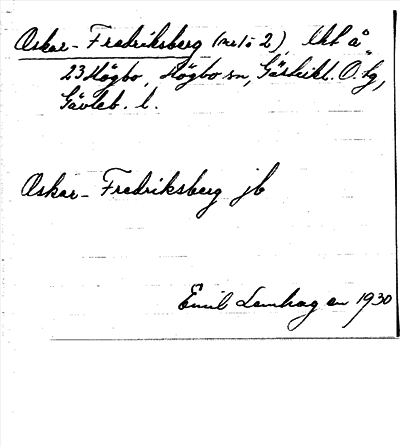 Oskar-Fredriksberg (nr 1 o 2), lht å
23 Högbo, Högbo sn, Gästrikl. Ö. tg,
Gävleb. l.
Oskar-Fredriksberg jb
Emil Lenhagen 1930